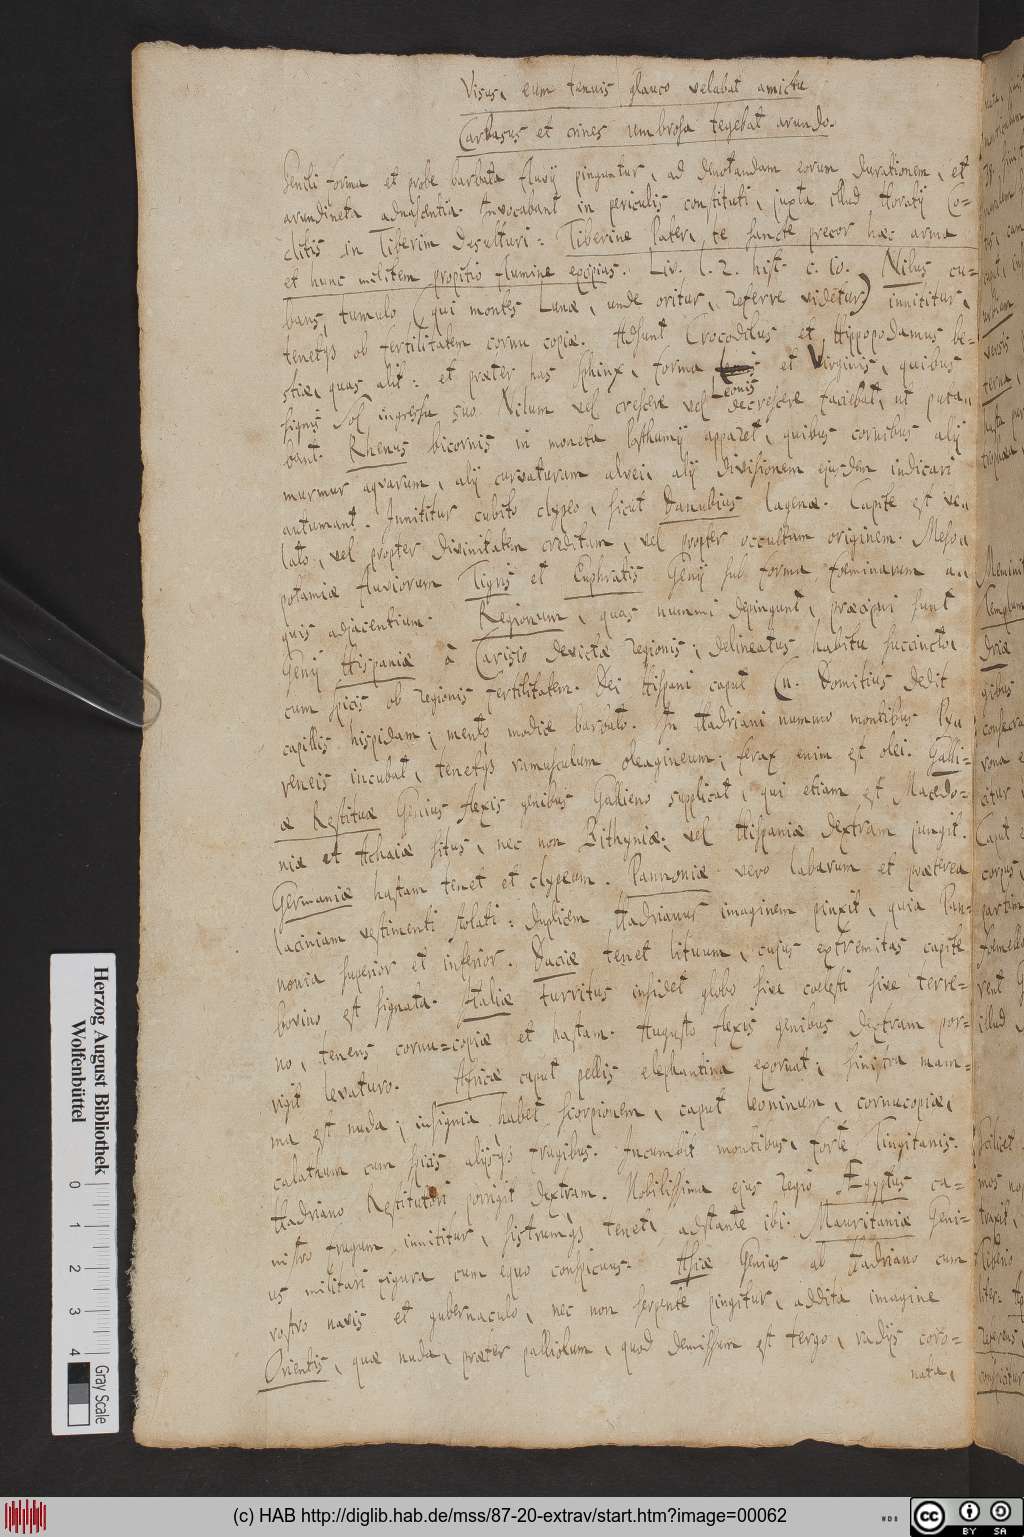 Visus, eum tenuis glauco velabat amictu
Carbasus et crines umbrosa tegebat arundo.
Senili forma et probe barbata fluvij pinguntur, ad denotandam eorum durationem, et
arundineta adnascentia. Invocabant in periculis constituti, juxta illud Horatij Co=
clitis in Tiberim desulturi: Tiberine Pater, te sancte precor hæc arma
et hunc militem propitio flumine excipias. Liv. l. 2. hist. c. 10. Nilus cu=
bans, tumulo (qui montes Lunæ, unde oritur, referre videtur) innititur,
tenetqs ob fertilitatem cornu copiæ. Adsunt Crocodilus et Hippopodamus be=
stiæ, quas alit: et præter has Sphinx, forma Leonis et Virginis, quibus
signis Sol ingressu suo Nilum vel crescere vel decrescere faciebat, ut puta=
bant. Rhenus bicornis in moneta Posthumij apparet, quibus cornibus alij
murmur aquarum, alij curvaturam alvei, alij divisionem ejusdem indicari
autumant. Innititur cubito clypeo, sicut Danubius lagenæ. Capite est ve=
lato, vel propter divinitatem creditam, vel propter occultam originem. Meso=
potamiæ fluviorum Tigris et Euphratis Genij sub forma fœminarum a=
quis adjacentium. Regionum, quas nummi depingunt, præcipui sunt
Genij Hispaniæ à Carisio devictæ regionis; delineatus habitu succincto,
cum spicis ob regionis fertilitatem. Dei Hispani caput Cn. Domitius dedit
capillis hispidam; mento modice barbato. In Hadriani nummo montibus Py=
reneis incubat, tenetqs ramusculum oleagineum; ferax enim est olei. Galli=
æ Restitutæ Genius flexis genibus Gallieno supplicat, qui etiam est Macedo=
niæ et Achaiæ situs, nec non Bithyniæ, vel Hispaniæ dextram jungit.
Germaniæ hastam tenet et clypeum. Pannoniæ vero labarum et præterea
laciniam vestimenti stolati: duplicem Hadrianus imaginem pinxit, quia Pan=
nonia superior et inferior. Daciæ tenet lituum, cujus extremitas capite
bovino est signata. Italiæ turritus insidet globo sive coelesti sive terre=
no, tenens cornu=copiæ et hastam. Augusto flexis genibus dextram por=
rigit levaturo. Africæ caput pellis elephantina exornat; sinistra mam=
ma est nuda; insignia habet scorpionem, caput leoninum, cornucopiæ,
calathum cum spicis alijsqs frugibus. Incumbit montibus, forte Tingitanis.
Hadriano Restitutori porrigit dextram. Nobilissima ejus regio Egyptus ca=
nistro frugum innititur, sistrumqs tenet, adstante ibi. Mauritaniæ Geni=
us militari figura cum equo conspicuus. Asiæ Genius ab Hadriano cum
rostro navis et gubernaculo, nec non serpente pingitur, addita imagine
Orientis, quæ nuda, præter palliolum, quod demissum est tergo, radijs coro=
nata,
Herzog August Bibliothek
Wolfenbüttel
0 1 2 3 4
Gray Scale
(c) HAB http://diglib.hab.de/mss/87-20-extrav/start.htm?image=00062
cc BY SA